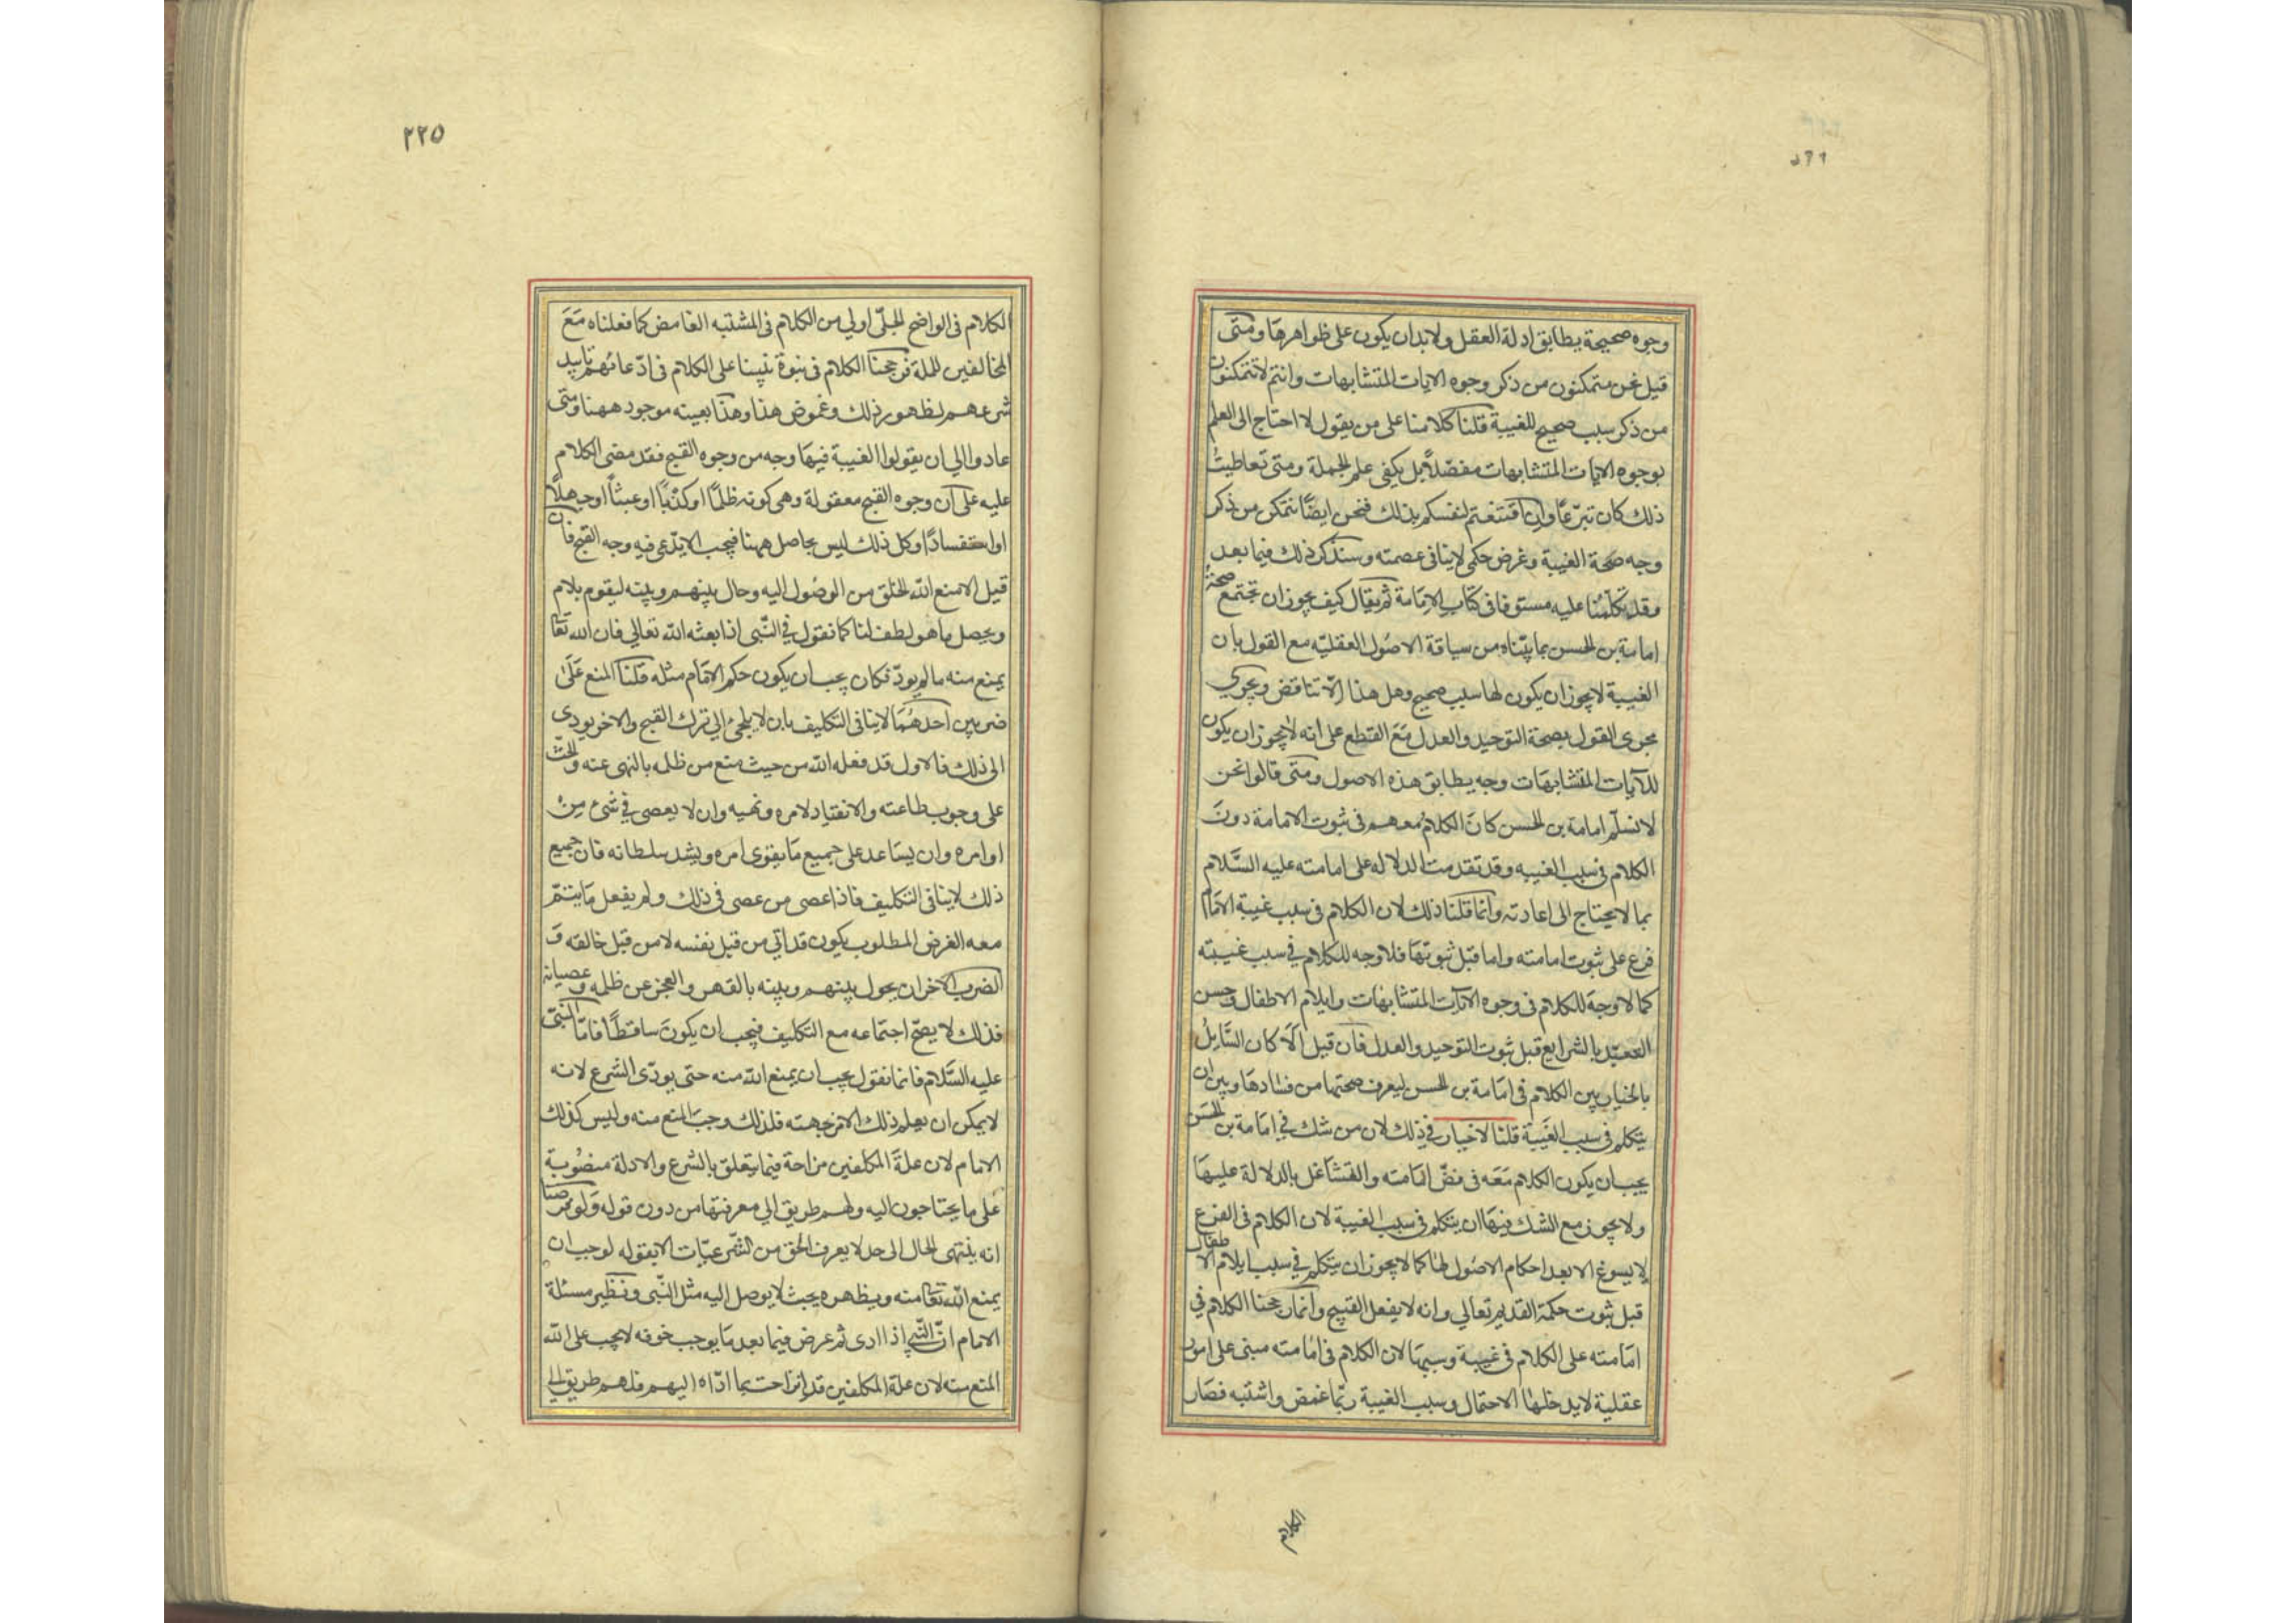 وجوه صحيحة يطابق ادلة العقل ولا بد ان يكون على ظواهرها ومتى
قيل نحن متمكنون من ذكر وجوه الايات المتشابهات وانتم لا تتمكنون
من ذكر سبب صحيح للغيبة قلنا كلامنا على من يقول لا احتاج الى العلم
بوجوه الايات المتشابهات مفصّلاً بل يكفى علم الجملة ومتى تعاطيت
ذلك كان تبرّعاً وان اقتنعتم لنفسكم بذلك فنحن ايضاً نتمكن من ذكر
وجه صحة الغيبة وغرض حكمى لا ينافى عصمته وسنذكر ذلك فيما بعد
وقد تكلّمنا عليه مستوفا فى كتاب الامامة ثم يقال كيف يجوز ان تجتمع صحة
امامة بن الحسن بما بيّناه من سياقة الاصول العقليّه مع القول بان
الغيبة لا يجوز ان يكون لها سبب صحيح وهل هذا الّا تناقض ويجرى
مجرى القول بصحة التوحيد والعدل مع القطع على انه لا يجوز ان يكون
للآيات المتشابهات وجه يطابق هذه الاصول ومتى قالوا نحن
لا نسلّم امامة بن الحسن كان الكلام معهم فى ثبوت الامامة دون
الكلام فى سبب الغيبه وقد تقدمت الدلاله على امامته عليه السَّلام
بما لا يحتاج الى اعادته وانما قلنا ذلك لان الكلام فى سبب غيبة الامام
فرع على ثبوت امامته واما قبل ثبوتها فلا وجه للكلام فى سبب غيبته
كما لا وجه للكلام فى وجوه الآيات المتشابهات وايلام الاطفال وحسن
التعبّد بالشرايع قبل ثبوت التوحيد والعدل فان قيل الّا كان السَّايل
بالخيار بين الكلام فى امامة بن الحسن ليعرف صحتها من فسادها وبين ان
يتكلم فى سبب الغيبة قلنا لا خيار فى ذلك لان من شك فى امامة بن الحسن
يجب ان يكون الكلام معه فى نصّ امامته والتشاغل بالدلالة عليها
ولا يجوز مع الشك فيها ان يتكلم فى سبب الغيبة لان الكلام فى الفرع
لا يسوغ الا بعد احكام الاصول لها كما لا يجوز ان يتكلم فى سبب ايلام الاطفال
قبل ثبوت حكمة القديم تعالى وانه لا يفعل القبيح وانما رجحنا الكلام فى
امامته على الكلام فى غيبة وسببها لان الكلام فى امامته مبنى على امور
عقلية لا يدخلها الاحتمال وسبب الغيبة ربّما غمض واشتبه فصار
الكلام
٢٢٥
الكلام فى الواضح الجلىّ اولى من الكلام فى المشتبه الغامض كما فعلناه مع
المخالفين للملة فرجحنا الكلام فى نبوة نبينا على الكلام فى ادّعائهم تابيد
شرعهم لظهور ذلك وغموض هذا وهذا بعينه موجود ههنا ومتى
عادوا الى ان يقولوا الغيبة فيها وجه من وجوه القبح فقد مضى الكلام
عليه على ان وجوه القبح معقولة وهى كونه ظلماً او كذباً او عبثاً او جهلاً
او استفساداً وكل ذلك ليس بحاصل ههنا فيجب الا يدّعى فيه وجه القبح فان
قيل الا منع الله الخلق من الوصول اليه وحال بينهم وبينه ليقوم بلامر
ويحصل ما هو لطف لنا كما نقول فى النّبى اذا بعثه الله تعالى فان الله تعا
يمنع منه ما لم يودّ فكان يجب ان يكون حكم الامام مثله قلنا المنع على
ضربين احدهما لا ينافى التكليف بان لا يلجئ الى ترك القبح والاخر يودى
الى ذلك فالاول قد فعله الله من حيث منع من ظلمه بالنهى عنه والحثّ
على وجوب طاعته والانقياد لامره ونهيه وان لا يعصى فى شئ من
اوامره وان يساعد على جميع ما يقوى امره ويشد سلطانه فان جميع
ذلك لا ينافى التكليف فاذا عصى من عصى فى ذلك ولم يفعل ما يتمّ
معه الغرض المطلوب يكون قد اتى من قبل نفسه لا من قبل خالقه و
الضرب الاخر ان يحول بينهم وبينه بالقهر والعجز عن ظلمه وعصيانه
فذلك لا يصحّ اجتماعه مع التكليف فيجب ان يكون ساقطاً فامّا النّبىّ
عليه السَّلام فانما نقول يجب ان يمنع الله منه حتى يودّى الشرع لانه
لا يمكن ان يعلم ذلك الا من جهته فلذلك وجب المنع منه وليس كذلك
الامام لان علة المكلفين مزاحة فيما يتعلق بالشرع والادلة منصوبة
على ما يحتاجون اليه ولهم طريق الى معرفتها من دون قوله ولو فرضنا
انه ينتهى الحال الى حد لا يعرف الحق من الشّرعيّات الا بقوله لوجب ان
يمنع الله تعا منه ويظهره بحيث لا يوصل اليه مثل النّبى ونظير مسئلة
الامام انّ النّبى اذا ادى ثم عرض فيما بعد ما يوجب خوفه لا يجب على الله
المنع منه لان علة المكلفين قد انزاحت بما ادّاه اليهم فلهم طريق الى